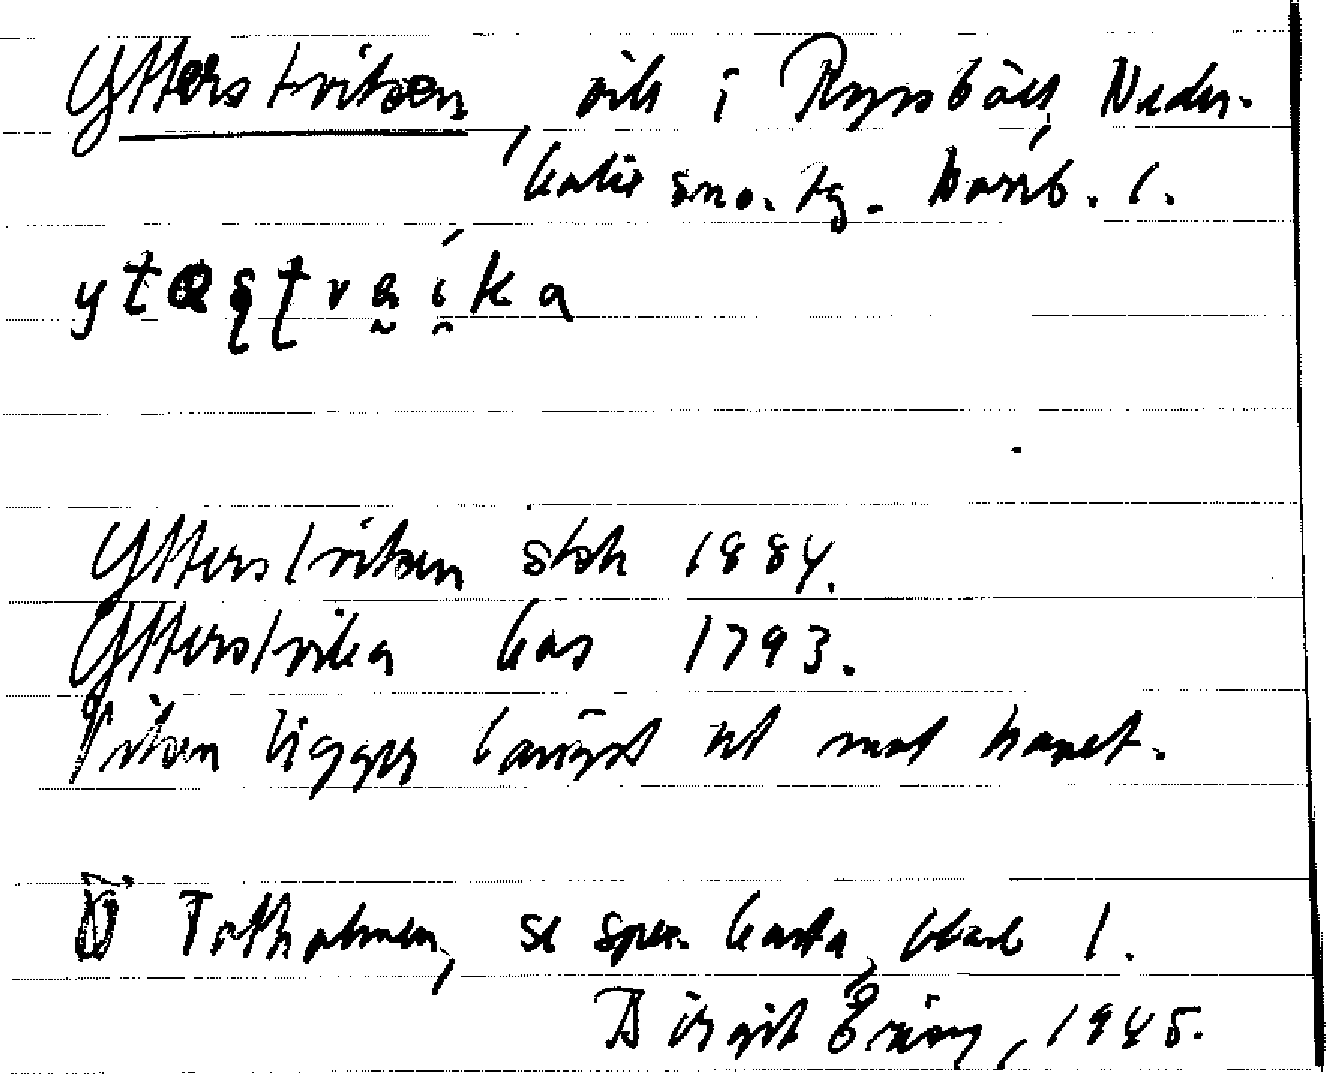 Ytterstviken, vik i Ryssbält, Neder-
kalix sn o. tg. Norrb. l.
Ytterstviken stsk 1884.
Ytterstvika kas 1793.
Viken ligger längst ut mot havet.
O Tottholmen, se spec. karta, blad 1.
Birgit 1945.